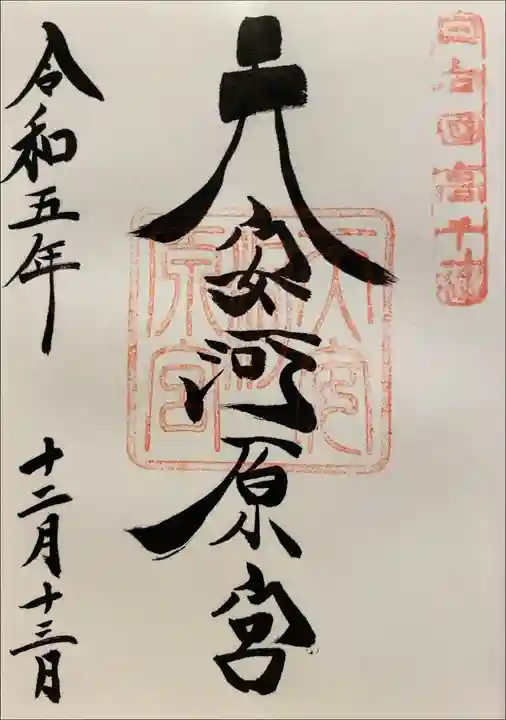 日向國高千穂
天安河原宮
天安河原宮
令和五年 十二月十三日